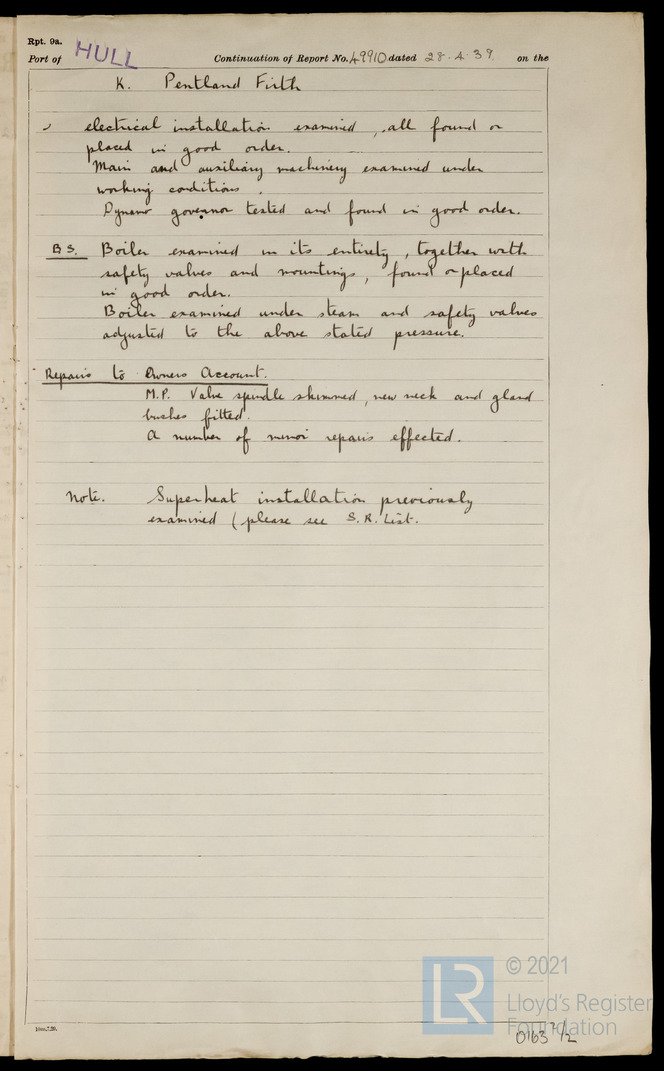 Rpt. 9a.
Port of HULL Continuation of Report No. 49910 dated 28.4.39. on the
K. Pentland Firth
electrical installation examined, all found or
placed in good order.
Main and auxiliary machinery examined under
working conditions.
Dynamo governor tested and found in good order.
B S. Boiler examined in its entirety, together with
safety valves and mountings, found or placed
in good order.
Boiler examined under steam and safety valves
adjusted to the above stated pressure.
Repairs to Owners Account.
M.P. Valve spindle skimmed, new neck and gland
bushes fitted.
A number of minor repairs effected.
Note. Superheat installation previously
examined (please see S.R. List.
© 2021
LR
Lloyd's Register
Foundation
0163 2/2